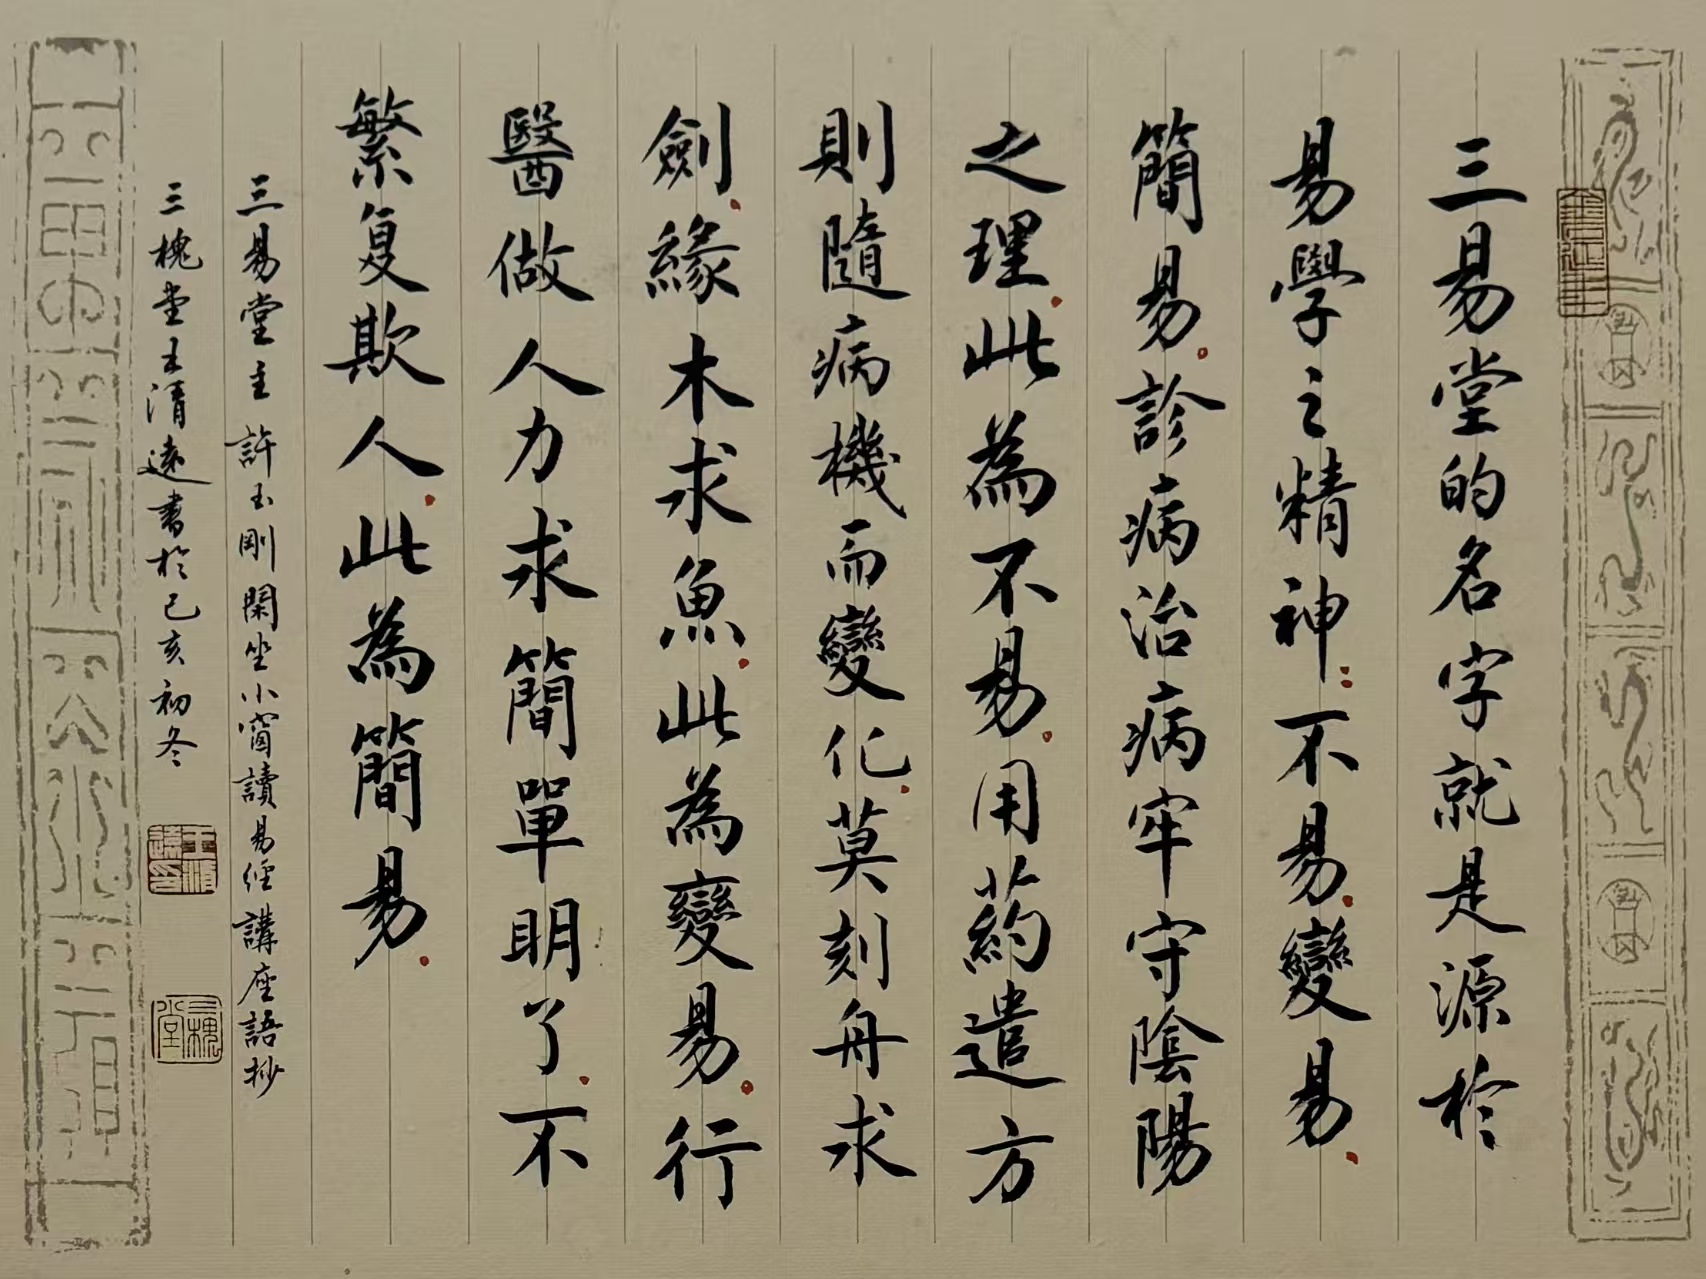 三易堂的名字就是源於
易學之精神：不易.變易.
簡易.診病治病牢守陰陽
之理.此為不易.用药遣方
則隨病機而變化.莫刻舟求
劍.緣木求魚.此為變易.行
醫做人力求簡單明了.不
繁复欺人.此為簡易.
三易堂主許玉剛閑坐小窗讀易經講座語抄
三槐堂王清遠書於己亥初冬
三槐堂